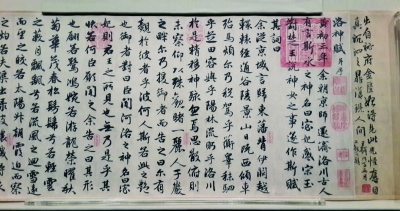 洛神賦
黃初三年余朝京師還濟洛川古人
有言斯水之神名曰宓妃感宋玉
對楚王神女之事遂作斯賦
其詞曰
余從京域言歸東藩背伊闕越
轘轅經通谷陵景山日既西傾車
殆馬煩爾迺稅駕乎蘅皋秣駟
乎芝田容與乎陽林流眄乎洛川
於是精移神駭忽焉思散俯則
未察仰以殊觀睹一麗人于巖
之畔爾乃援御者而告之曰爾有
覿於彼者乎彼何人斯若此之艷
也御者對曰臣聞河洛之神名曰宓
妃則君王之所見也無乃是乎其
狀若何臣願聞之余告之曰其形
也翩若驚鴻婉若游龍榮曜秋
菊華茂春松髣髴兮若輕雲
之蔽月飄飖兮若流風之迴雪遠
而望之皎若太陽升朝霞迫而察
之灼若芙蕖出淥波